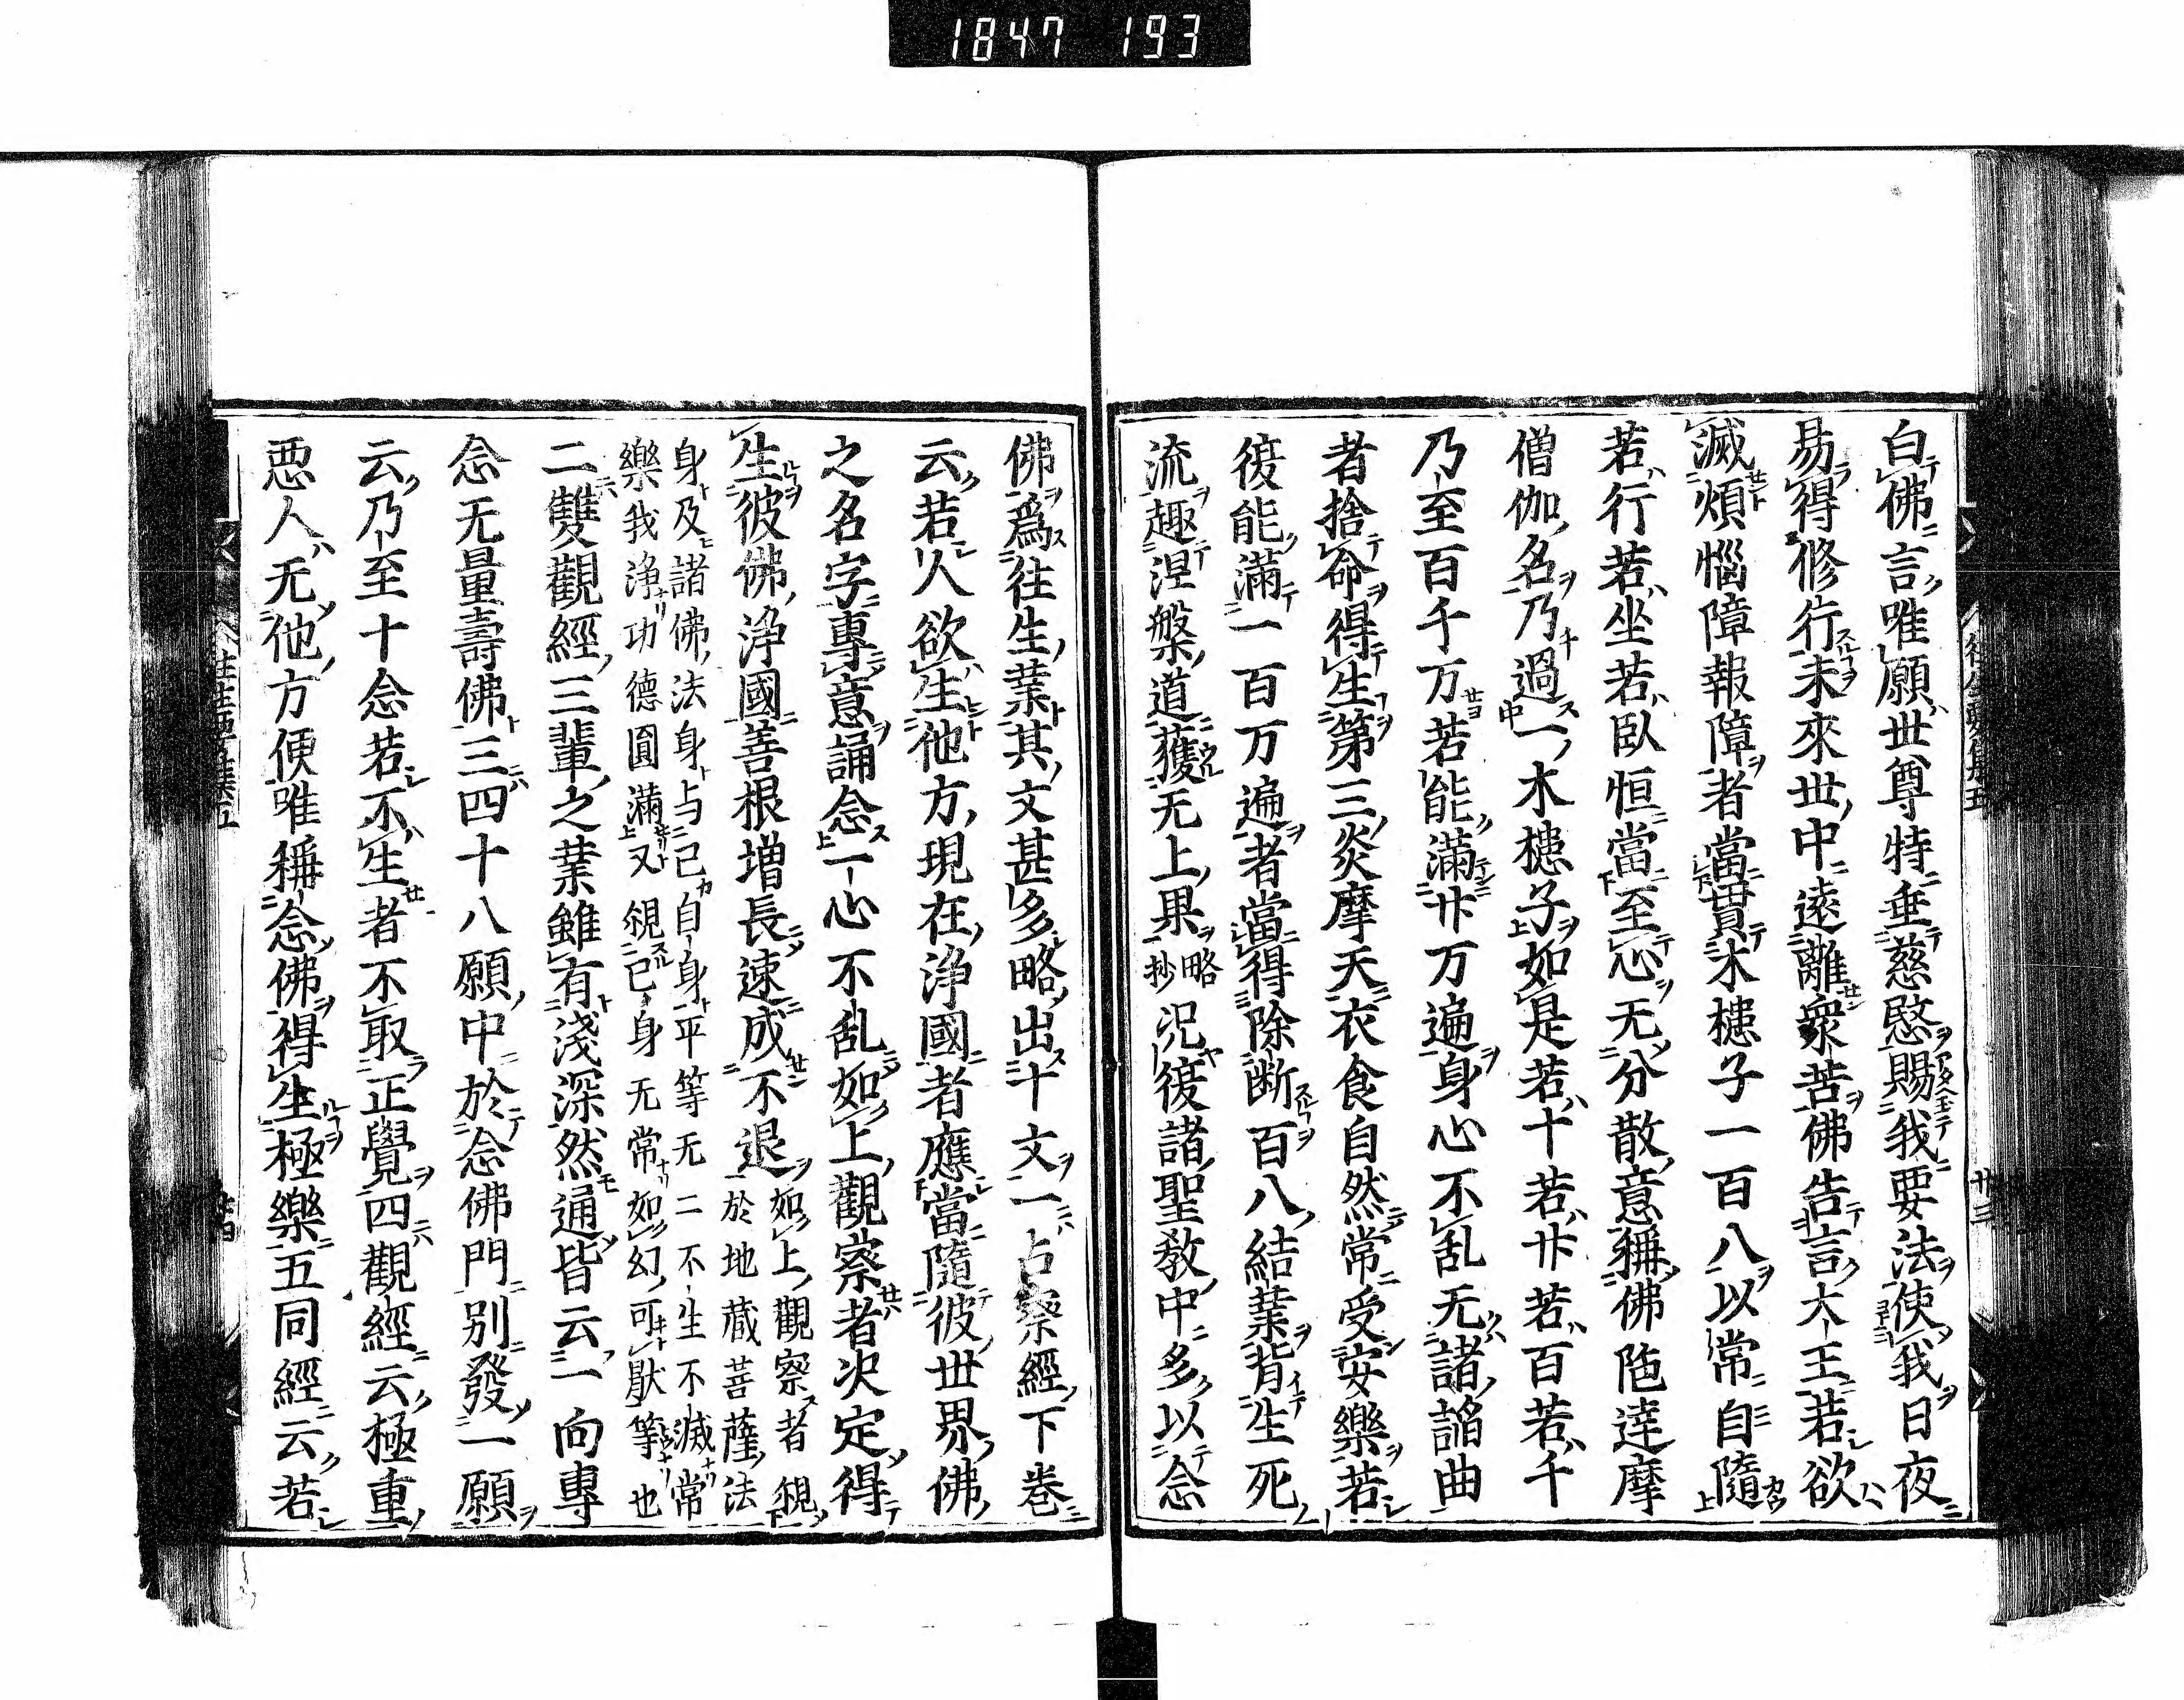 1847 193
白佛言唯願世尊特垂慈愍賜我要法使我日夜
易得修行未來世中遠離衆苦佛告言大王若欲
滅煩惱障報障者當貫木槵子一百八以常自隨
若行若坐若臥恒當至心无分散意稱佛陁達摩
僧伽名乃過一木槵子如是若十若廿若百若千
乃至百千万若能滿廿万遍身心不乱无諸諂曲
者捨命得生第三炎摩天衣食自然常受安樂若
復能滿一百万遍者當得除断百八結業背生死
流趣涅槃道獲无上果略抄況復諸聖教中多以念
佛爲往生業其文甚多略出十文一占察經下卷
云若人欲生他方現在浄國者應當隨彼世界佛
之名字專意誦念一心不乱如上觀察者决定得
生彼佛浄國善根增長速成不退如上觀察者覌
於地藏菩薩法
身及諸佛法身与己自身平等无二不生不滅常
樂我浄功德圓滿又覌己身无常如幻可猒等也
二雙觀經三輩之業雖有淺深然通皆云一向專
念无量壽佛三四十八願中於念佛門别發一願
云乃至十念若不生者不取正覺四觀經云極重
悪人无他方便唯稱念佛得生極樂五同經云若